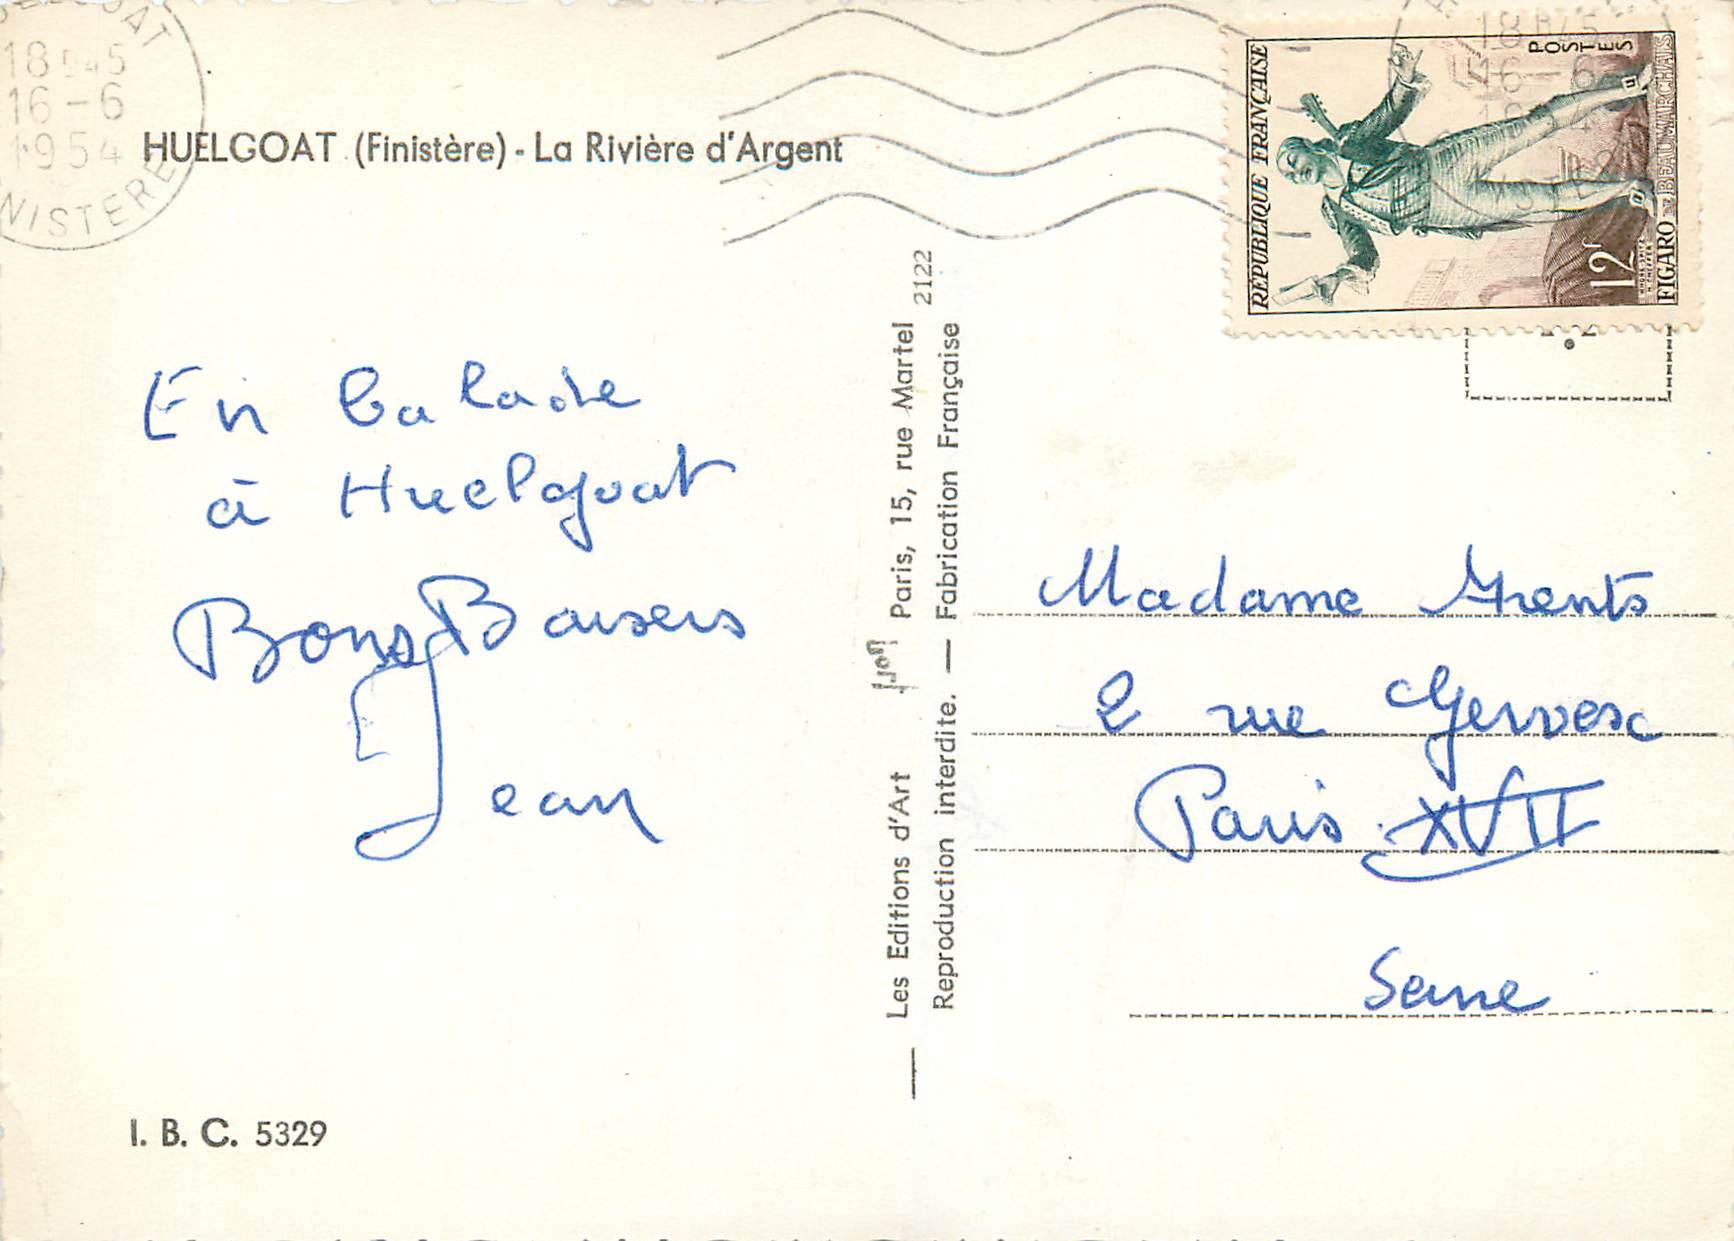 18H45
16-6
1954
HUELGOAT
FINISTERE
HUELGOAT (Finistère) - La Rivière d'Argent
En balade
à Huelgoat
Bons Baisers
Jean
I. B. C. 5329
Les Editions d'Art Yvon Paris, 15, rue Martel 2122
Reproduction interdite. — Fabrication Française
REPUBLIQUE FRANÇAISE
POSTES
12F
FIGARO DE BEAUMARCHAIS
18H45
16-6
1954
Madame
2 rue Gervex
Paris XVII
Seine